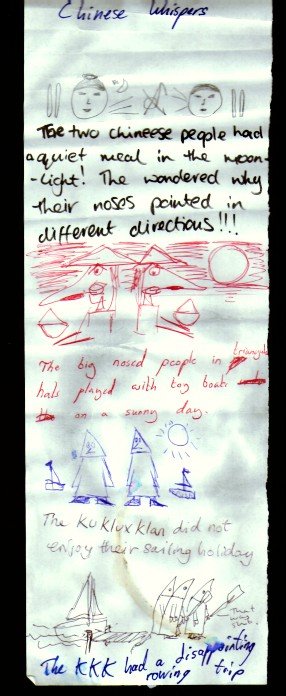 Chinese Whispers
The two chineese people had
a quiet meal in the moon-
-light! The wondered why
their noses pointed in
different directions!!!
The big nosed people in triangular
hats played with toy boats
on a sunny day.
The Ku Klux Klan did not
enjoy their sailing holiday
The KKK had a disappointing
rowing trip